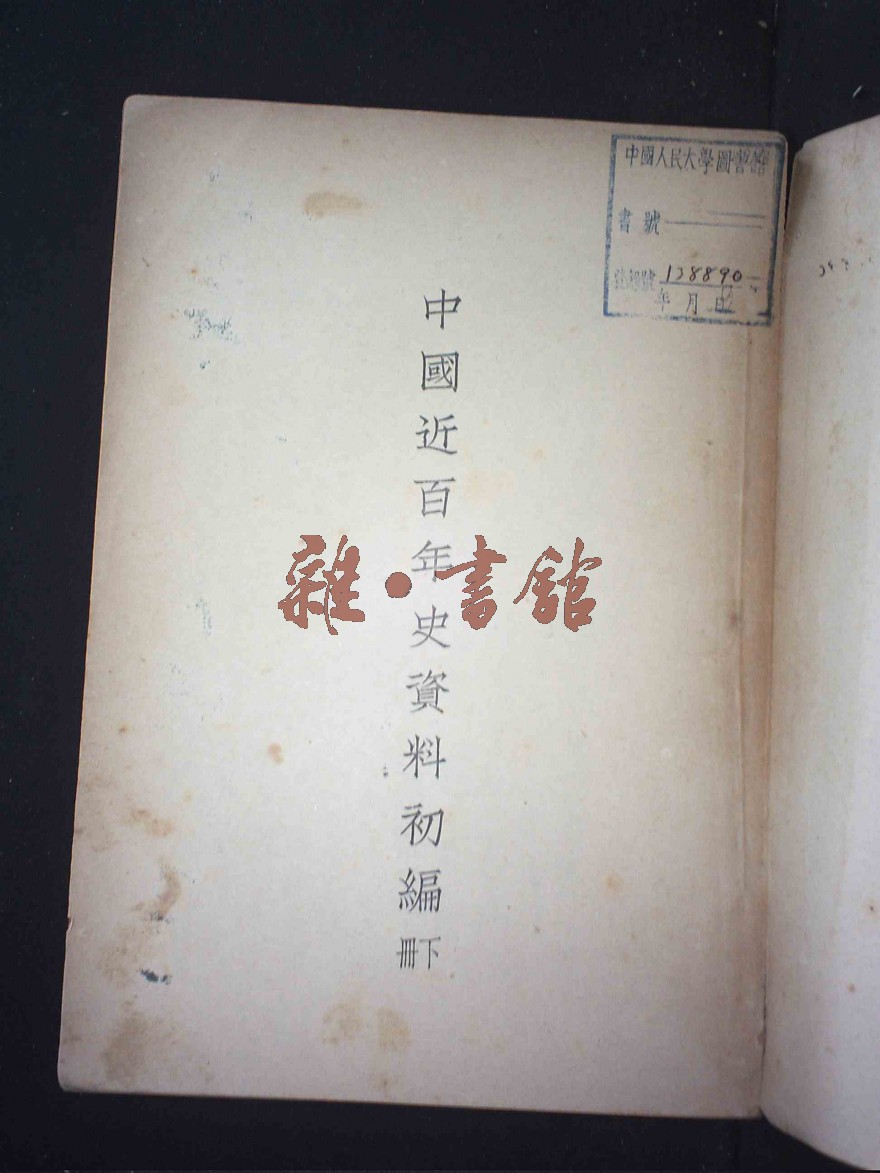 中國近百年史資料初編
下冊
中國人民大學圖書館
書號
138890
年 月 日
雜·書館